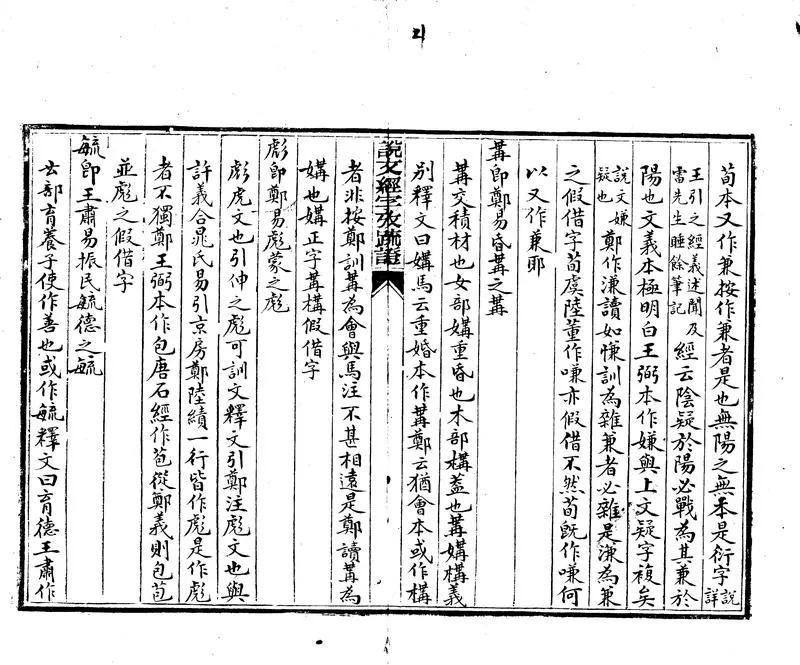 荀本又作兼按作兼者是也無陽之無本是衍字說詳
王引之經義述聞及雷先生睡餘筆記經云陰疑於陽必戰為其兼於
陽也文義本極明白王弼本作嫌與上文疑字複矣
說文嫌疑也鄭作溓讀如慊訓為雜兼者必雜是溓為兼
之假借字荀虞陸董作嗛亦假借不然荀既作嗛何
以又作兼耶
冓即鄭易昏冓之冓
冓交積材也女部媾重昏也木部構蓋也冓媾構義
別釋文曰媾馬云重婚本作冓鄭云猶會本或作構
說文經字攷疏證
者非按鄭訓冓為會與馬注不甚相遠是鄭讀冓為
媾也媾正字冓構假借字
彪即鄭易彪蒙之彪
彪虎文也引伸之彪可訓文釋文引鄭注彪文也與
許義合晁氏易引京房鄭陸績一行皆作彪是作彪
者不獨鄭王弼本作包唐石經作苞從鄭義則包苞
並彪之假借字
毓即王肅易振民毓德之毓
𠫓部育養子使作善也或作毓釋文曰育德王肅作